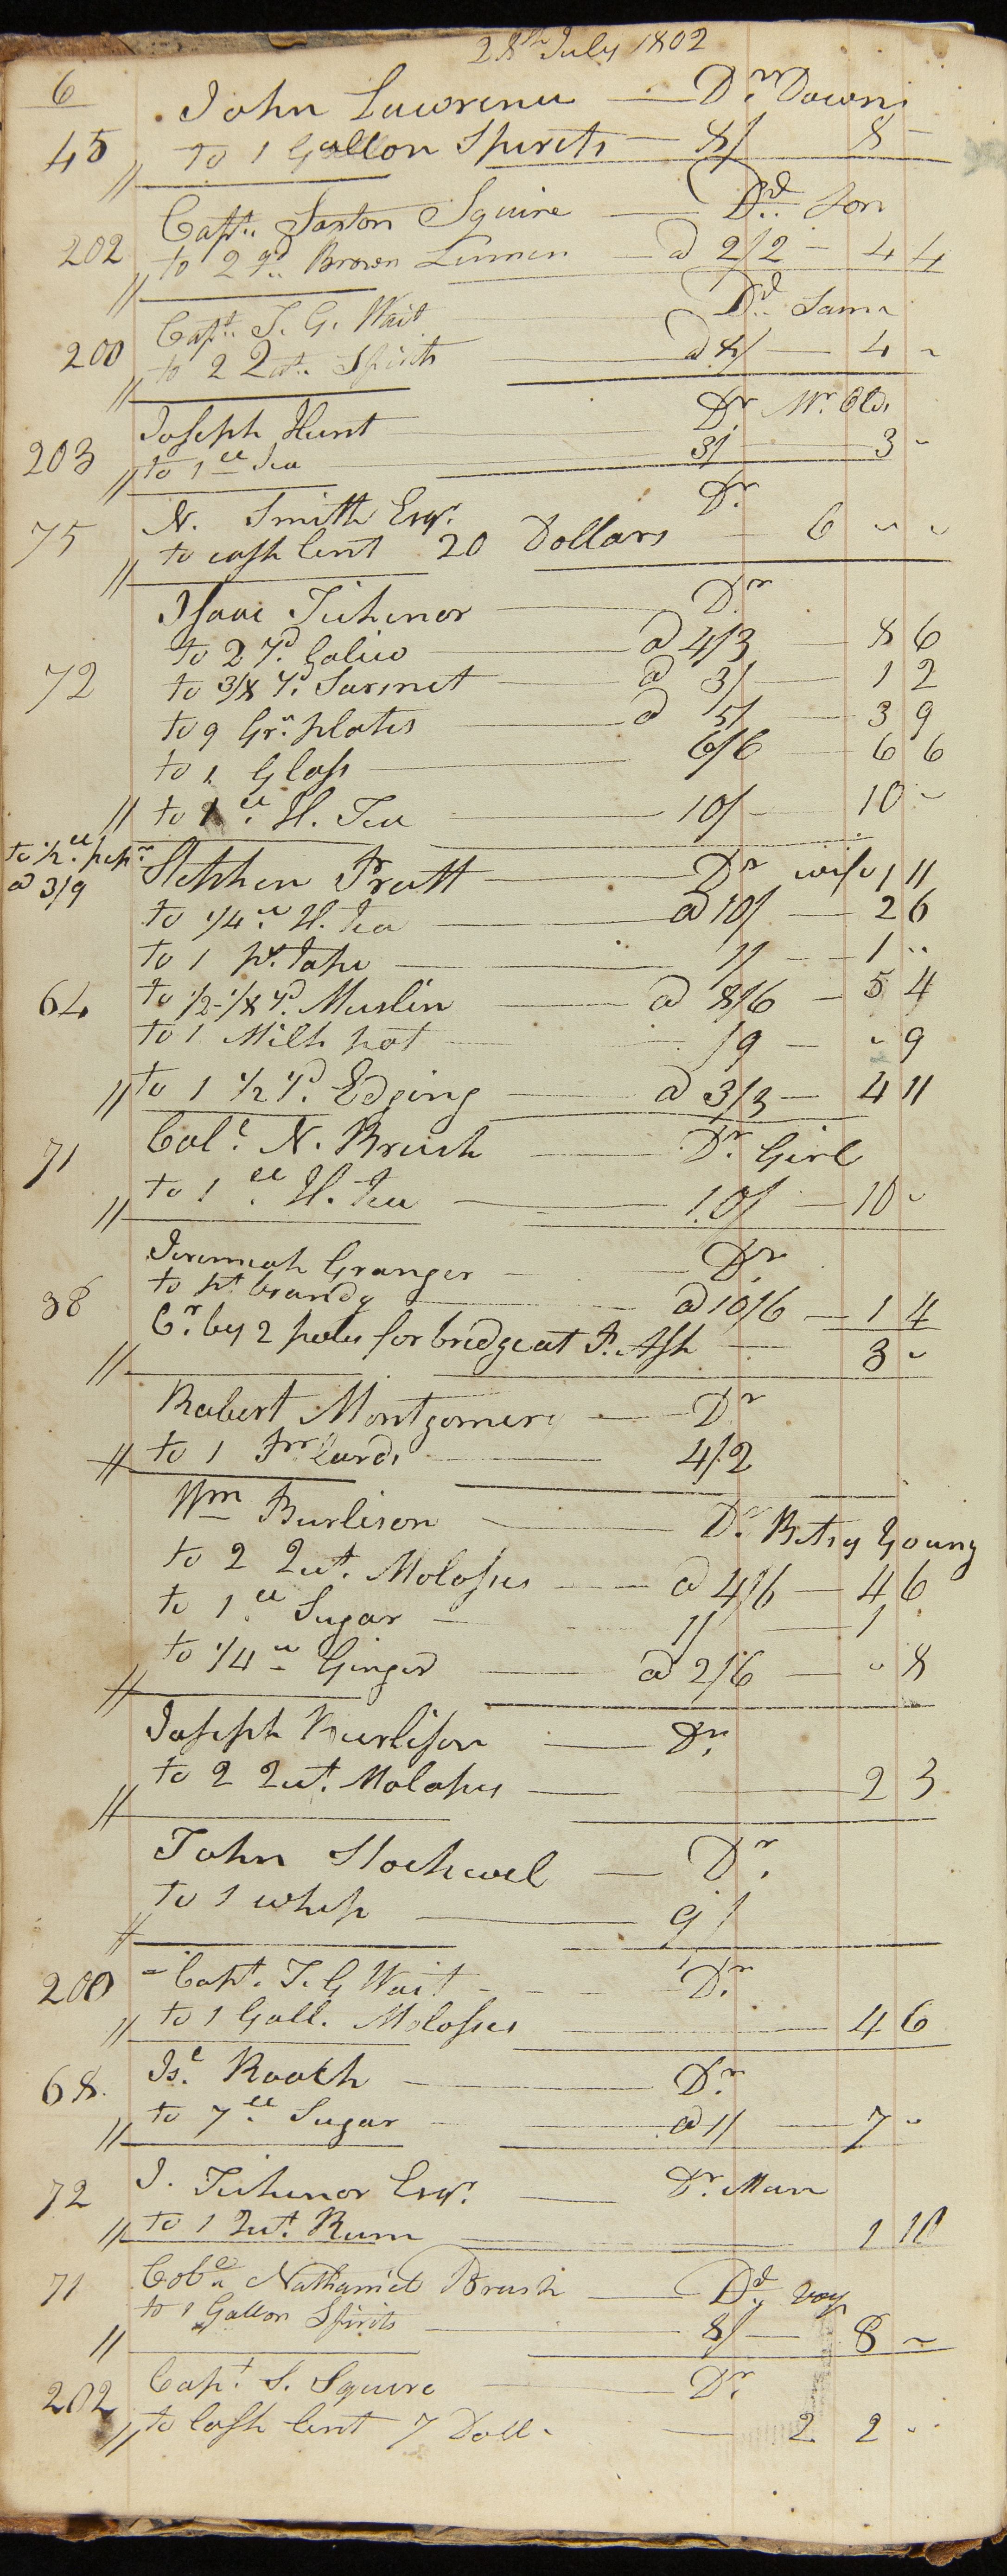 28th July 1802
6 John Lawrence — Dr Down
45 // to 1 Gallon Spirits — 8/ 8 –
Capt. Saxton Squire — Dd. Son
202 // to 2 yd Brown Linnen — a 2/2 – 4 4
Capt. T. G. Wait Dd. Same
200 // to 2 Qut. Spirits a 8/ — 4 ~
Joseph Hunt Dr Mr. Olds
203 // to 1 ll Tea 3/ — 3 ~
N. Smith Esqr. Dr
75 // to cash lent 20 Dollars – 6 " "
Isaac Tichenor — Dr
to 2 Yd. Calico — a 4/3 — 8 6
72 to 3/8 Yd. Sarsnet — a 3/ — 1 2
to 9 Gr. plates — a 5/ — 3 9
to 1 Glass — 6/6 — 6 6
// to 1 ll. H. Tea — 10/ – 10 ~
to 1/2 ll. pepr a 3/9 Stephen Pratt — Dr wife 1 11
to 1/4 ll H. Tea — a 10/ — 2 6
to 1 ps. Tape — 1/ – 1 "
64 to 1/2-1/8 Yd. Muslin — a 8/6 – 5 4
to 1 Milk pot — /9 – " 9
// to 1 1/2 Yd. Edging — a 3/3 – 4 11
71 Col. N. Brush — Dr. Girl
// to 1 ll. H. Tea — 10/ – 10 ~
Jeremiah Granger – Dr
38 to pt brandy — a 10/6 – 1 4
// Cr. by 2 poles for bridge at P. Ash – 3 ~
Robert Montgomery — Dr
// to 1 pr Cards — 4/2
Wm Burlison — Dr. Betsy Young
to 2 Qut. Molasses — a 4/6 – 4 6
to 1 ll Sugar – 1/ — 1
// to 1/4 ll Ginger — a 2/6 — " 8
Joseph Burlison — Dr.
// to 2 Qut. Molasses — 2 3
John Stockwel — Dr.
// to 1 whip — 9/
200 – Capt. T. G Wait – Dr.
// to 1 Gall. Molasses — 4 6
68. Is. Roach — Dr.
// to 7 ll. Sugar – a 1/ — 7 "
72 I. Tichenor Esqr. — Dr. Man
// to 1 Qut. Rum — 1 10
71 Col. Nathaniel Brush — Dd. boy
// to 1 Gallon Spirits — 8/ — 8 ~
202 Capt. S. Squire — Dr.
// to Cash lent 7 Doll. — 2 2 "